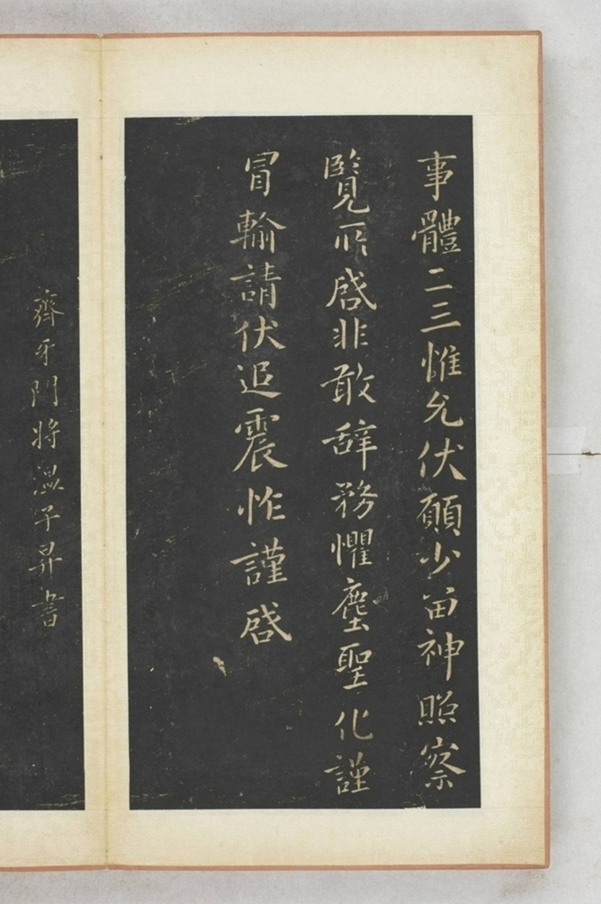 事體二三惟允伏願少留神照察
覽所啓非敢辞務懼塵聖化謹
冒輸請伏追震怍謹啓
齊开門將温子昇書